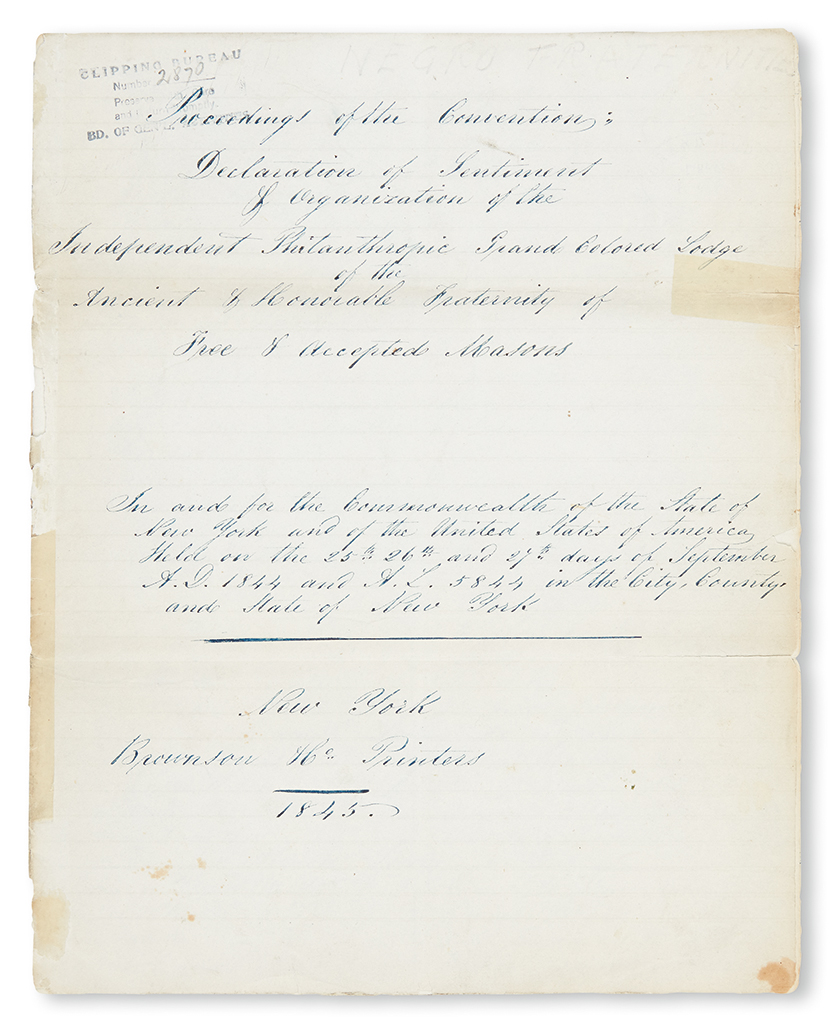 CLIPPING BUREAU
Number 2870
and
BD. OF GEN'L
NEGRO
Proceedings of the Convention;
Declaration of Sentiment
& Organization of the
Independent Philanthropic Grand Colored Lodge
of the
Ancient & Honorable Fraternity of
Free & Accepted Masons
In and for the Commonwealth of the State of
New York and of the United States of America,
Held on the 25th 26th and 27th days of September
A.D. 1844 and A.L. 5844 in the City, County,
and State of New York
New York
Brownson & Co Printers
1845.